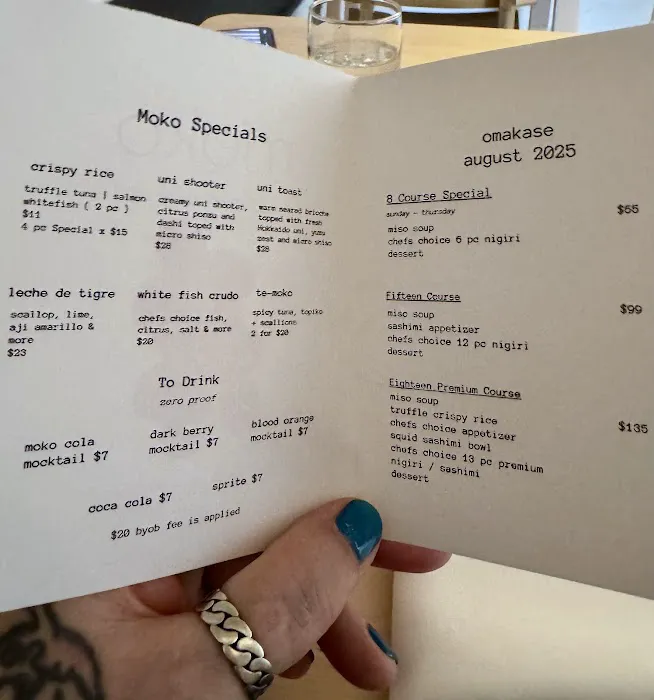 Moko Specials
crispy rice
truffle tuna | salmon
whitefish ( 2 pc )
$11
4 pc Special x $15
uni shooter
creamy uni shooter,
citrus ponzu and
dashi toped with
micro shiso
$28
uni toast
warm seared brioche
topped with fresh
Hokkaido uni, yuzu
zest and micro shiso
$28
leche de tigre
scallop, lime,
aji amarillo &
more
$23
white fish crudo
chefs choice fish,
citrus, salt & more
$20
te-moko
spicy tuna, topiko
+ scallions
2 for $20
To Drink
zero proof
moko cola
mocktail $7
dark berry
mocktail $7
blood orange
mocktail $7
coca cola $7
sprite $7
$20 byob fee is applied
omakase
august 2025
8 Course Special
sunday - thursday
$65
miso soup
chefs choice 6 pc nigiri
dessert
Fifteen Course
$99
miso soup
sashimi appetizer
chefs choice 12 pc nigiri
dessert
Eighteen Premium Course
miso soup
truffle crispy rice
chefs choice appetizer
$135
squid sashimi bowl
chefs choice 13 pc premium
nigiri / sashimi
dessert